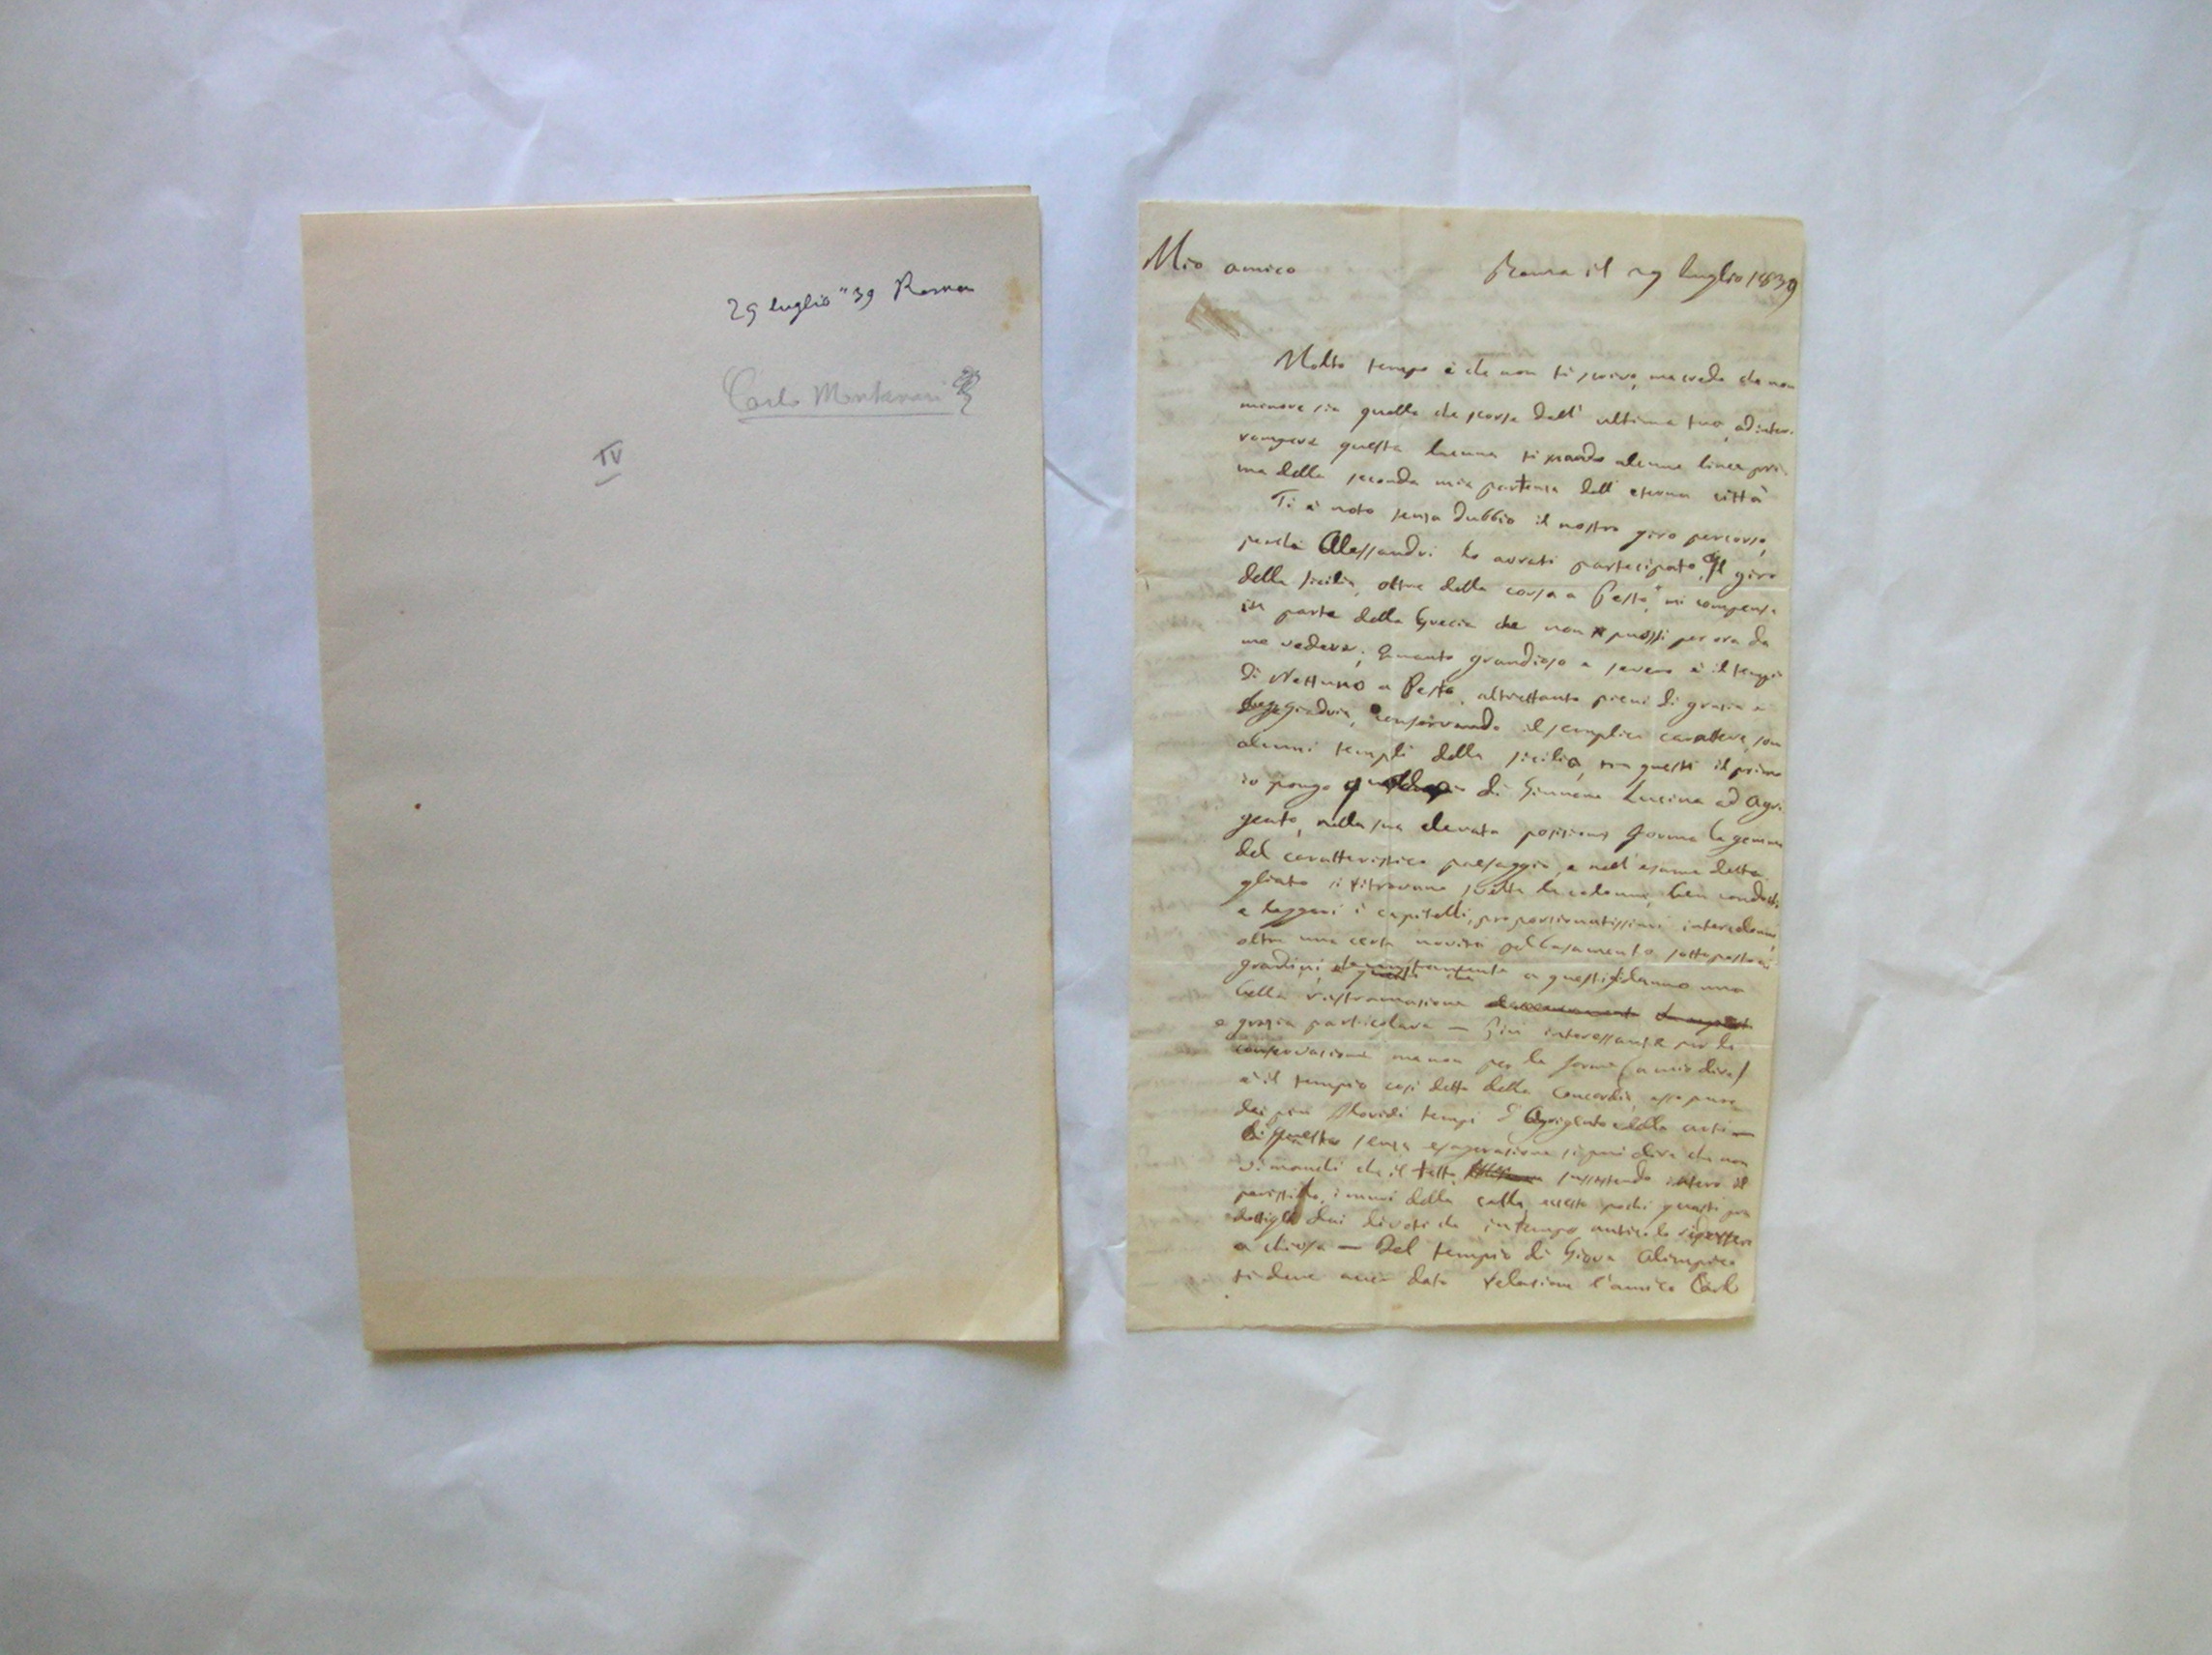 29 luglio "39 Roma
Carlo Montanari
IV
Mio amico
Roma il 29 luglio 1839
Molto tempo è che non ti scrivo, ma credo che non
minore sia quello che scorse dall' ultima tua, ad inter-
rompere questa lacuna ti mando alcune linee pri-
ma della seconda mia partenza dall' eterna città
Ti è noto senza dubbio il nostro giro percorso,
perchè Alessandri lo avrati partecipato, Il giro
della Sicilia, oltre della corsa a Pesto, mi compensa
in parte della Grecia che non puossi per ora da
me vedere; Quanto grandioso e severo è il tempio
di Nettuno a Pesto, altrettanto pieni di grazia e
leggiadria, conservando il semplice carattere, son
alcuni templi della Sicilia, fra questi il primo
io pongo quello di Giunone Lucina ad Agri-
gento, nella sua elevata posizione forma la gemma
del caratteristico paesaggio, e nell' esame detta-
gliato si ritrovano svelte le colonne, ben condotti
e leggeri i capitelli, proporzionatissimi intercolonni,
oltre una certa novità nel basamento sottoposto ai
gradini, a questi danno una
bella rastremazione
e grazia particolare — Più interessante per la
conservazione ma non per la forma (a mio dire)
è il tempio così detto della Concordia, esso pure
dei più floridi tempi d' Agrigento e delle arti —
Di questo senza esagerazione si può dire che non
vi manchi che il tetto, sussistendo intero il
peristilio, i muri della cella, eccetto pochi guasti
dai divoti che in tempo antico lo ridussero
a chiesa — Del tempio di Giove Olimpico
ti deve aver dato relazione l'amico Carlo